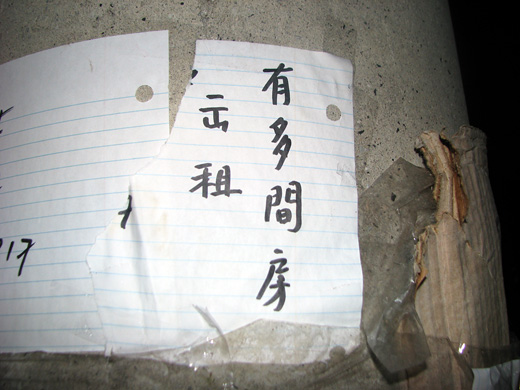 有多間房
出租
17